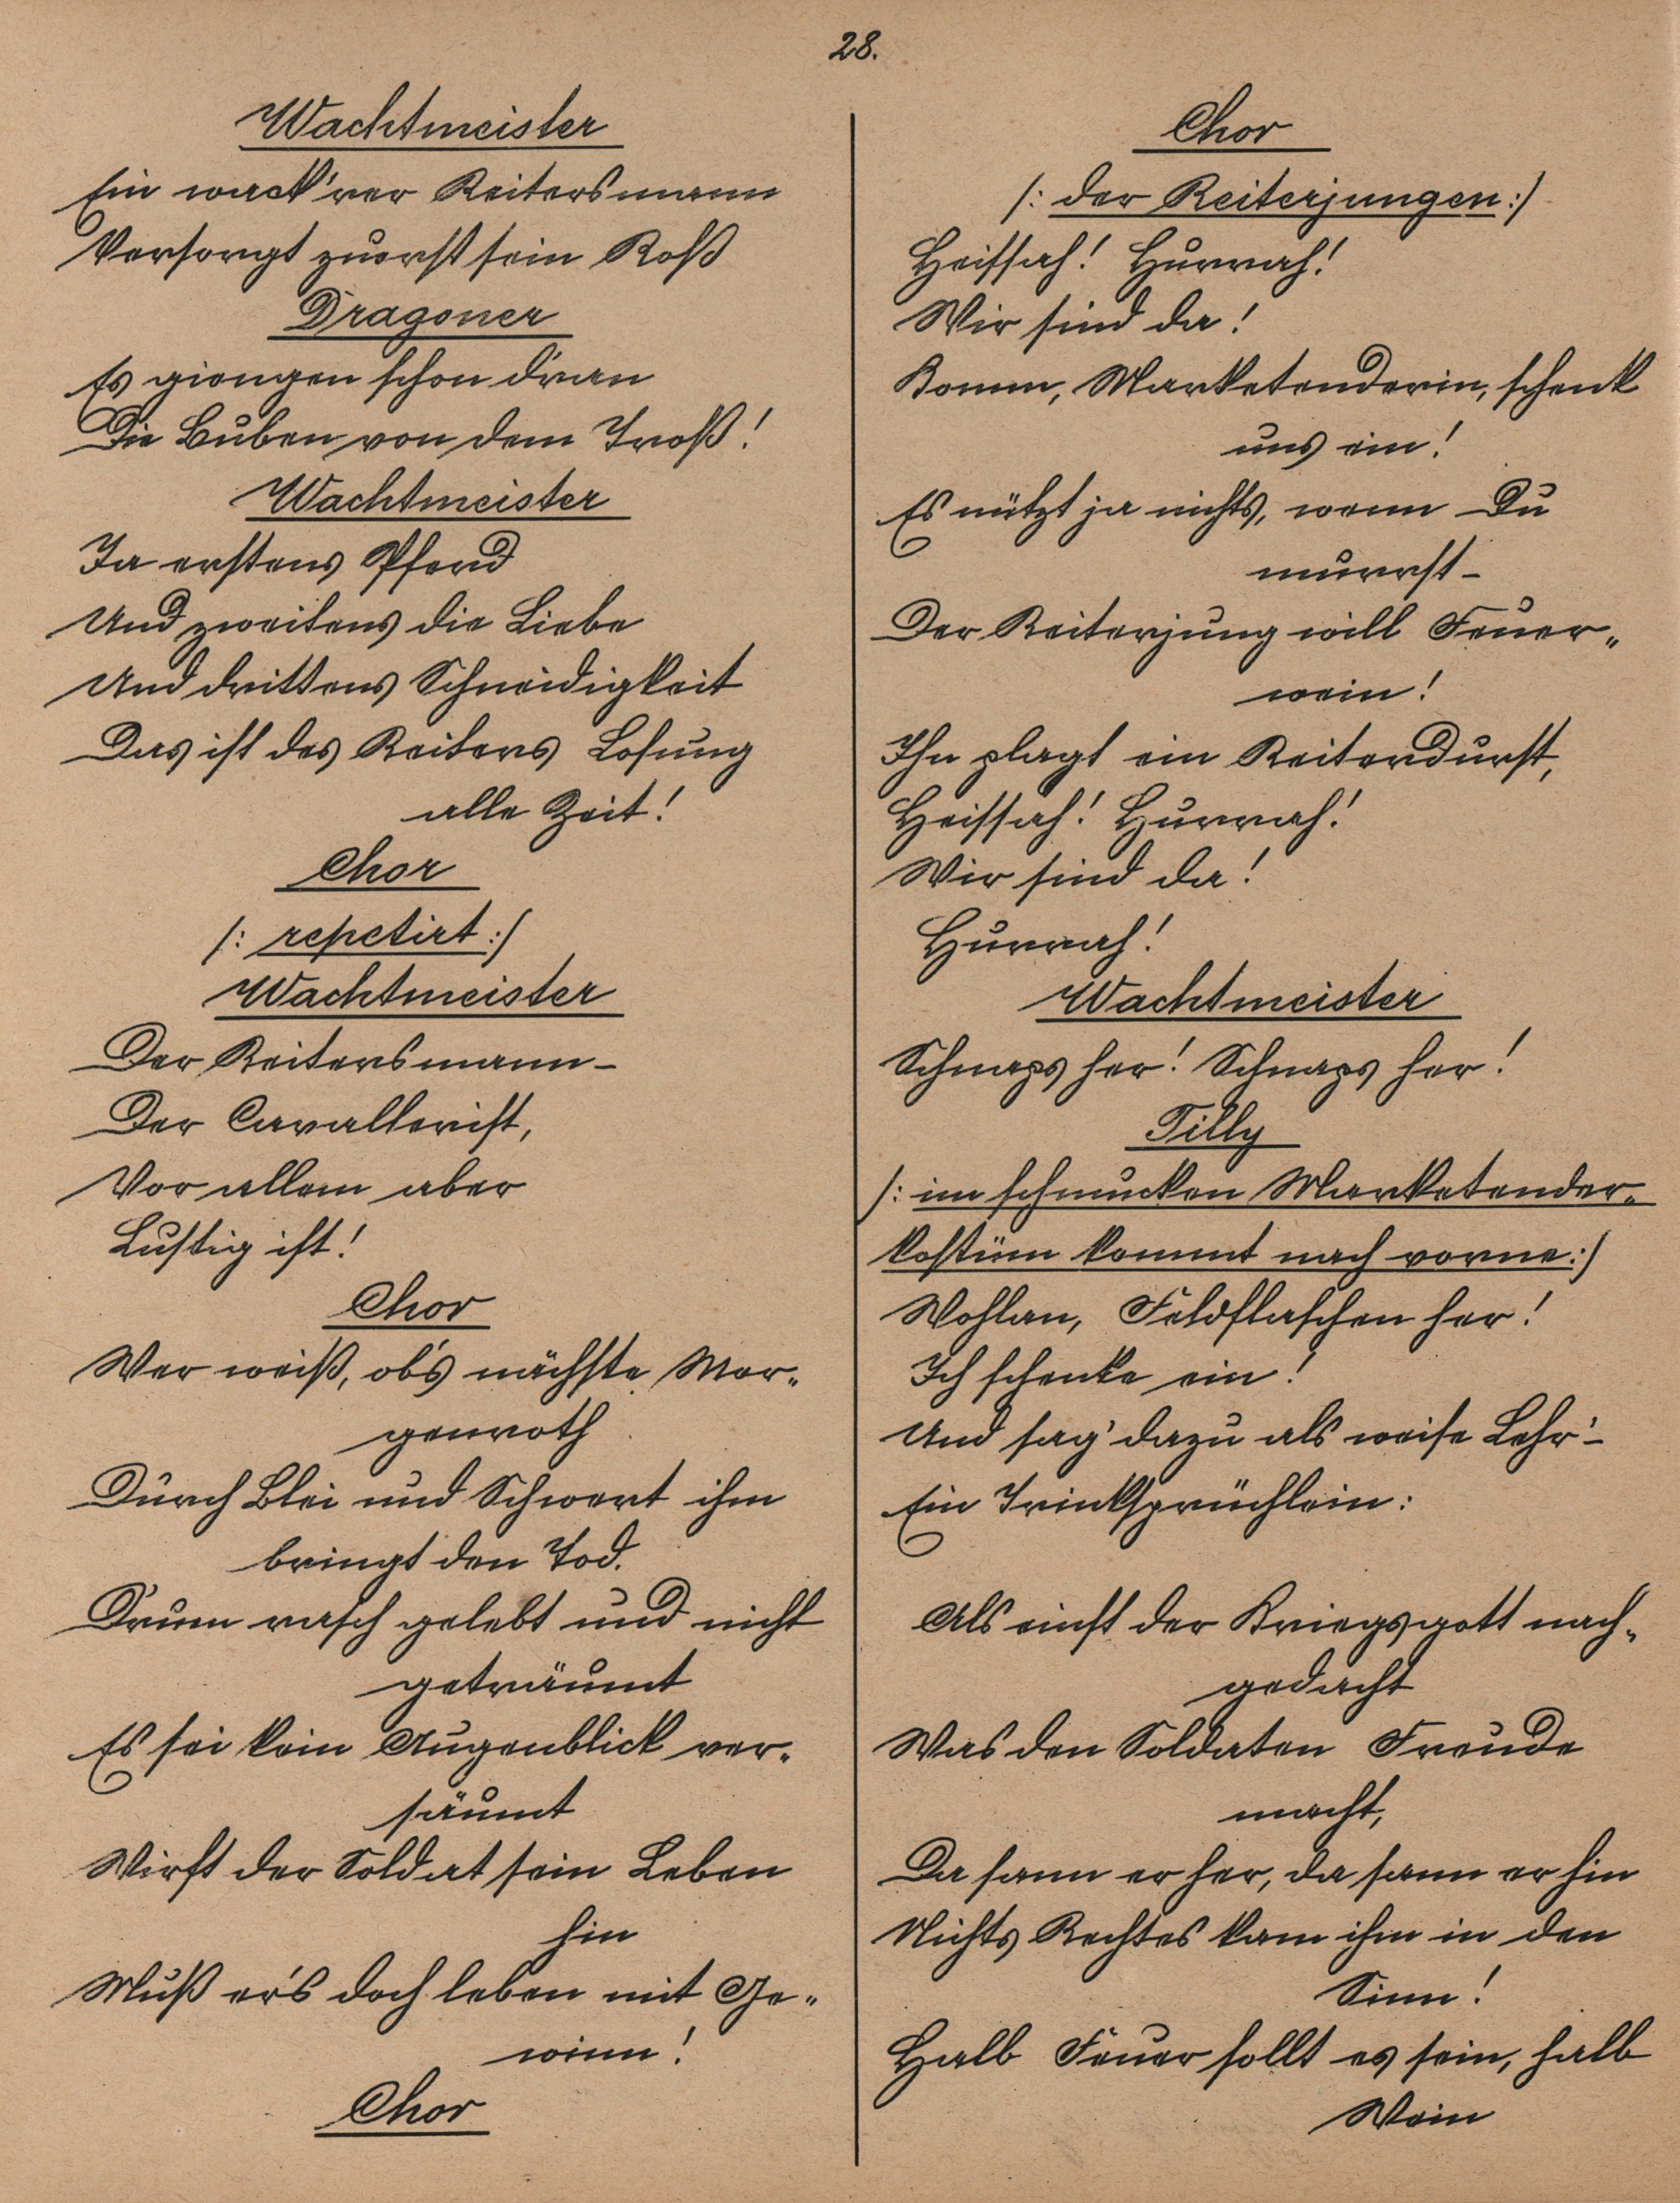 28.
Wachtmeister
Ein wack'rer Reitersmann
Versorgt zuerst sein Roß
Dragoner
Es giengen schon d'ran
Die Buben von dem Troß!
Wachtmeister
Ja erstens Pferd
Und zweitens die Liebe
Und drittens Schneidigkeit
Das ist des Reiters Losung
alle Zeit!
Chor
/: repetirt :/
Wachtmeister
Der Reitersmann-
Der Cavallerist,
Vor allem aber
Lustig ist!
Chor
Wer weiß, ob's nächste Mor„
genroth
Durch Blei und Schwert ihm
bringt den Tod.
Drum rasch gelebt und nicht
geträumt
Es sei kein Augenblick ver„
säumt
Wirft der Soldat sein Leben
hin
Muß er's doch leben mit Ge„
winn!
Chor
Chor
/: der Reiterjungen :/
Heissah! Hurrah!
Wir sind da!
Komm, Marketenderin, schenk
uns ein!
Es nützt ja nichts, wenn Du
murrst-
Der Reiterjung will Feuer„
wein!
Ihn plagt ein Reiterdurst,
Heissah! Hurrah!
Wir sind da!
Hurrah!
Wachtmeister
Schnaps her! Schnaps her!
Tilly
/: im schmucken Marketender„
kostüm kommt nach vorne :/
Wohlan, Feldflaschen her!
Ich schenke ein!
Und sag' dazu als weise Lehr'-
Ein Trinksprüchlein:
Als einst der Kriegsgott nach„
gedacht
Was den Soldaten Freude
macht,
Da sann er her, da sann er hin
Nichts Rechtes kam ihm in den
Sinn!
Halb Feuer sollt es sein, halb
Wein